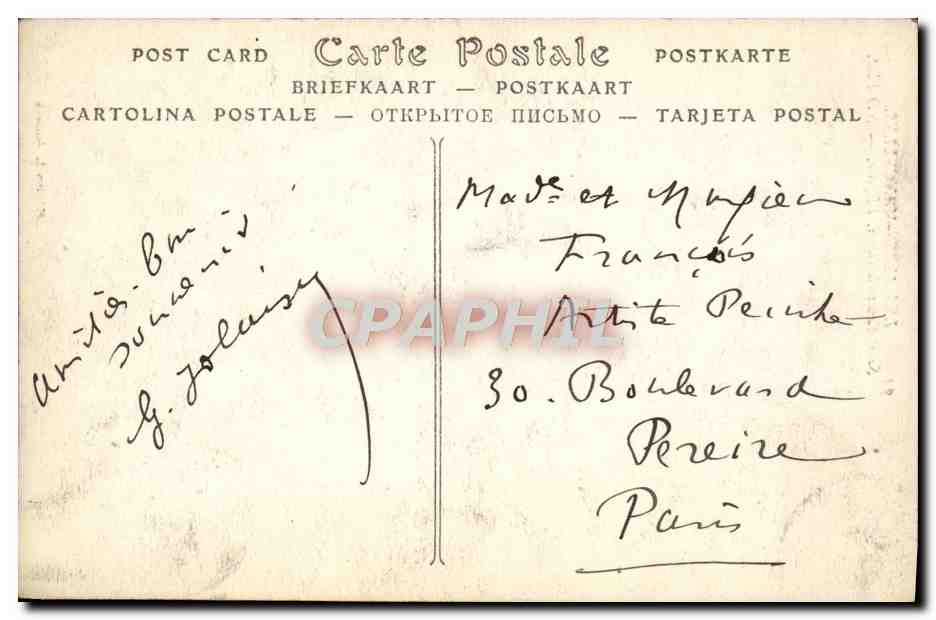 POST CARD Carte Postale POSTKARTE
BRIEFKAART — POSTKAART
CARTOLINA POSTALE — ОТКРЫТОЕ ПИСЬМО — TARJETA POSTAL
amitiés. bon
souvenir
G.
Made et Monsieur
François
Artiste Peintre
30. Boulevard
Pereire
Paris
CPAPHIL